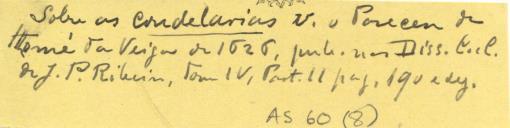 Sobre as condelarias v. o Parecer de
Thomé da Veiga de 1626, publ. nas Diss. C. C.
de J. P. Ribeiro, Tom IV, Part. II pag. 190 e seg.
AS 60 (8)